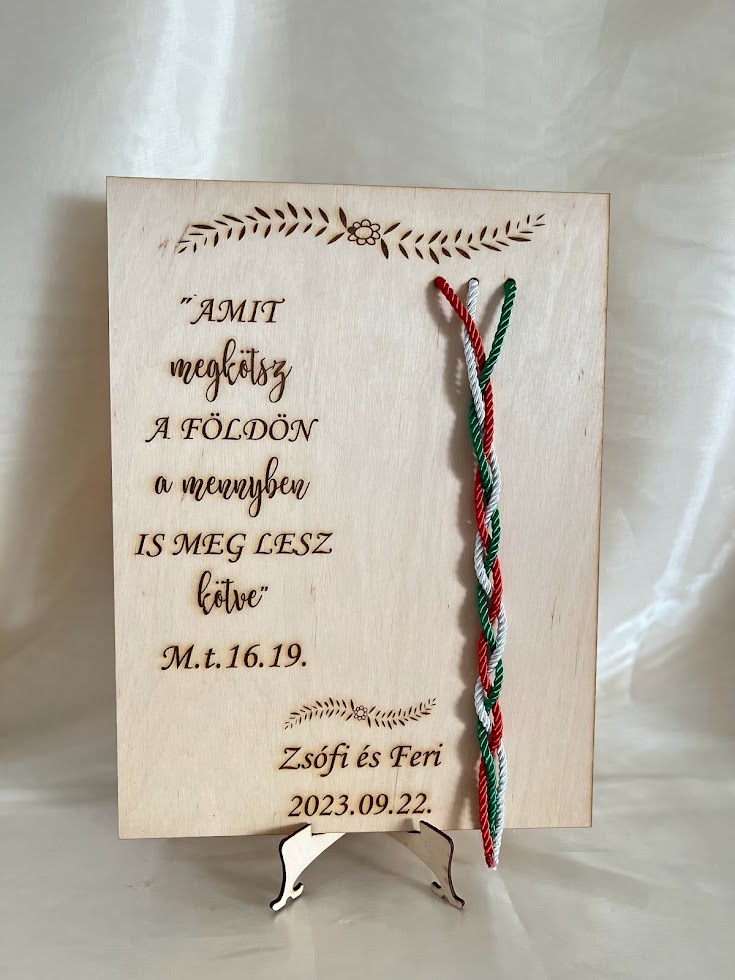 "AMIT
megkötsz
A FÖLDÖN
a mennyben
IS MEG LESZ
kötve"
M.t.16.19.
Zsófi és Feri
2023.09.22.